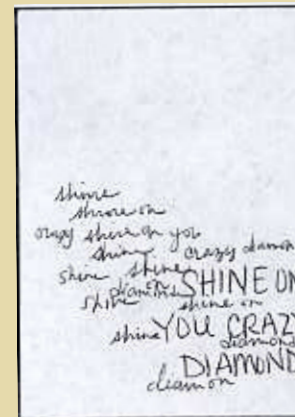 shine
shine on
crazy shine on you
shine crazy diamon
shine shine
diamond SHINE ON
shine shine on
shine YOU CRAZY
diamond
DIAMOND
diamon